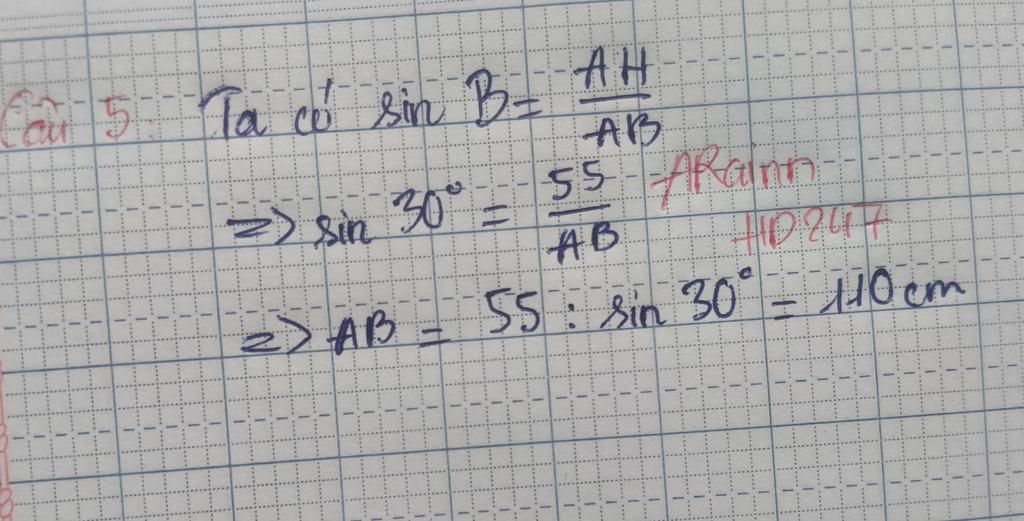 Câu 5: Ta có sin B = AH / AB
=> sin 30° = 55 / AB
ARainn
HD247
=> AB = 55 : sin 30° = 110 cm